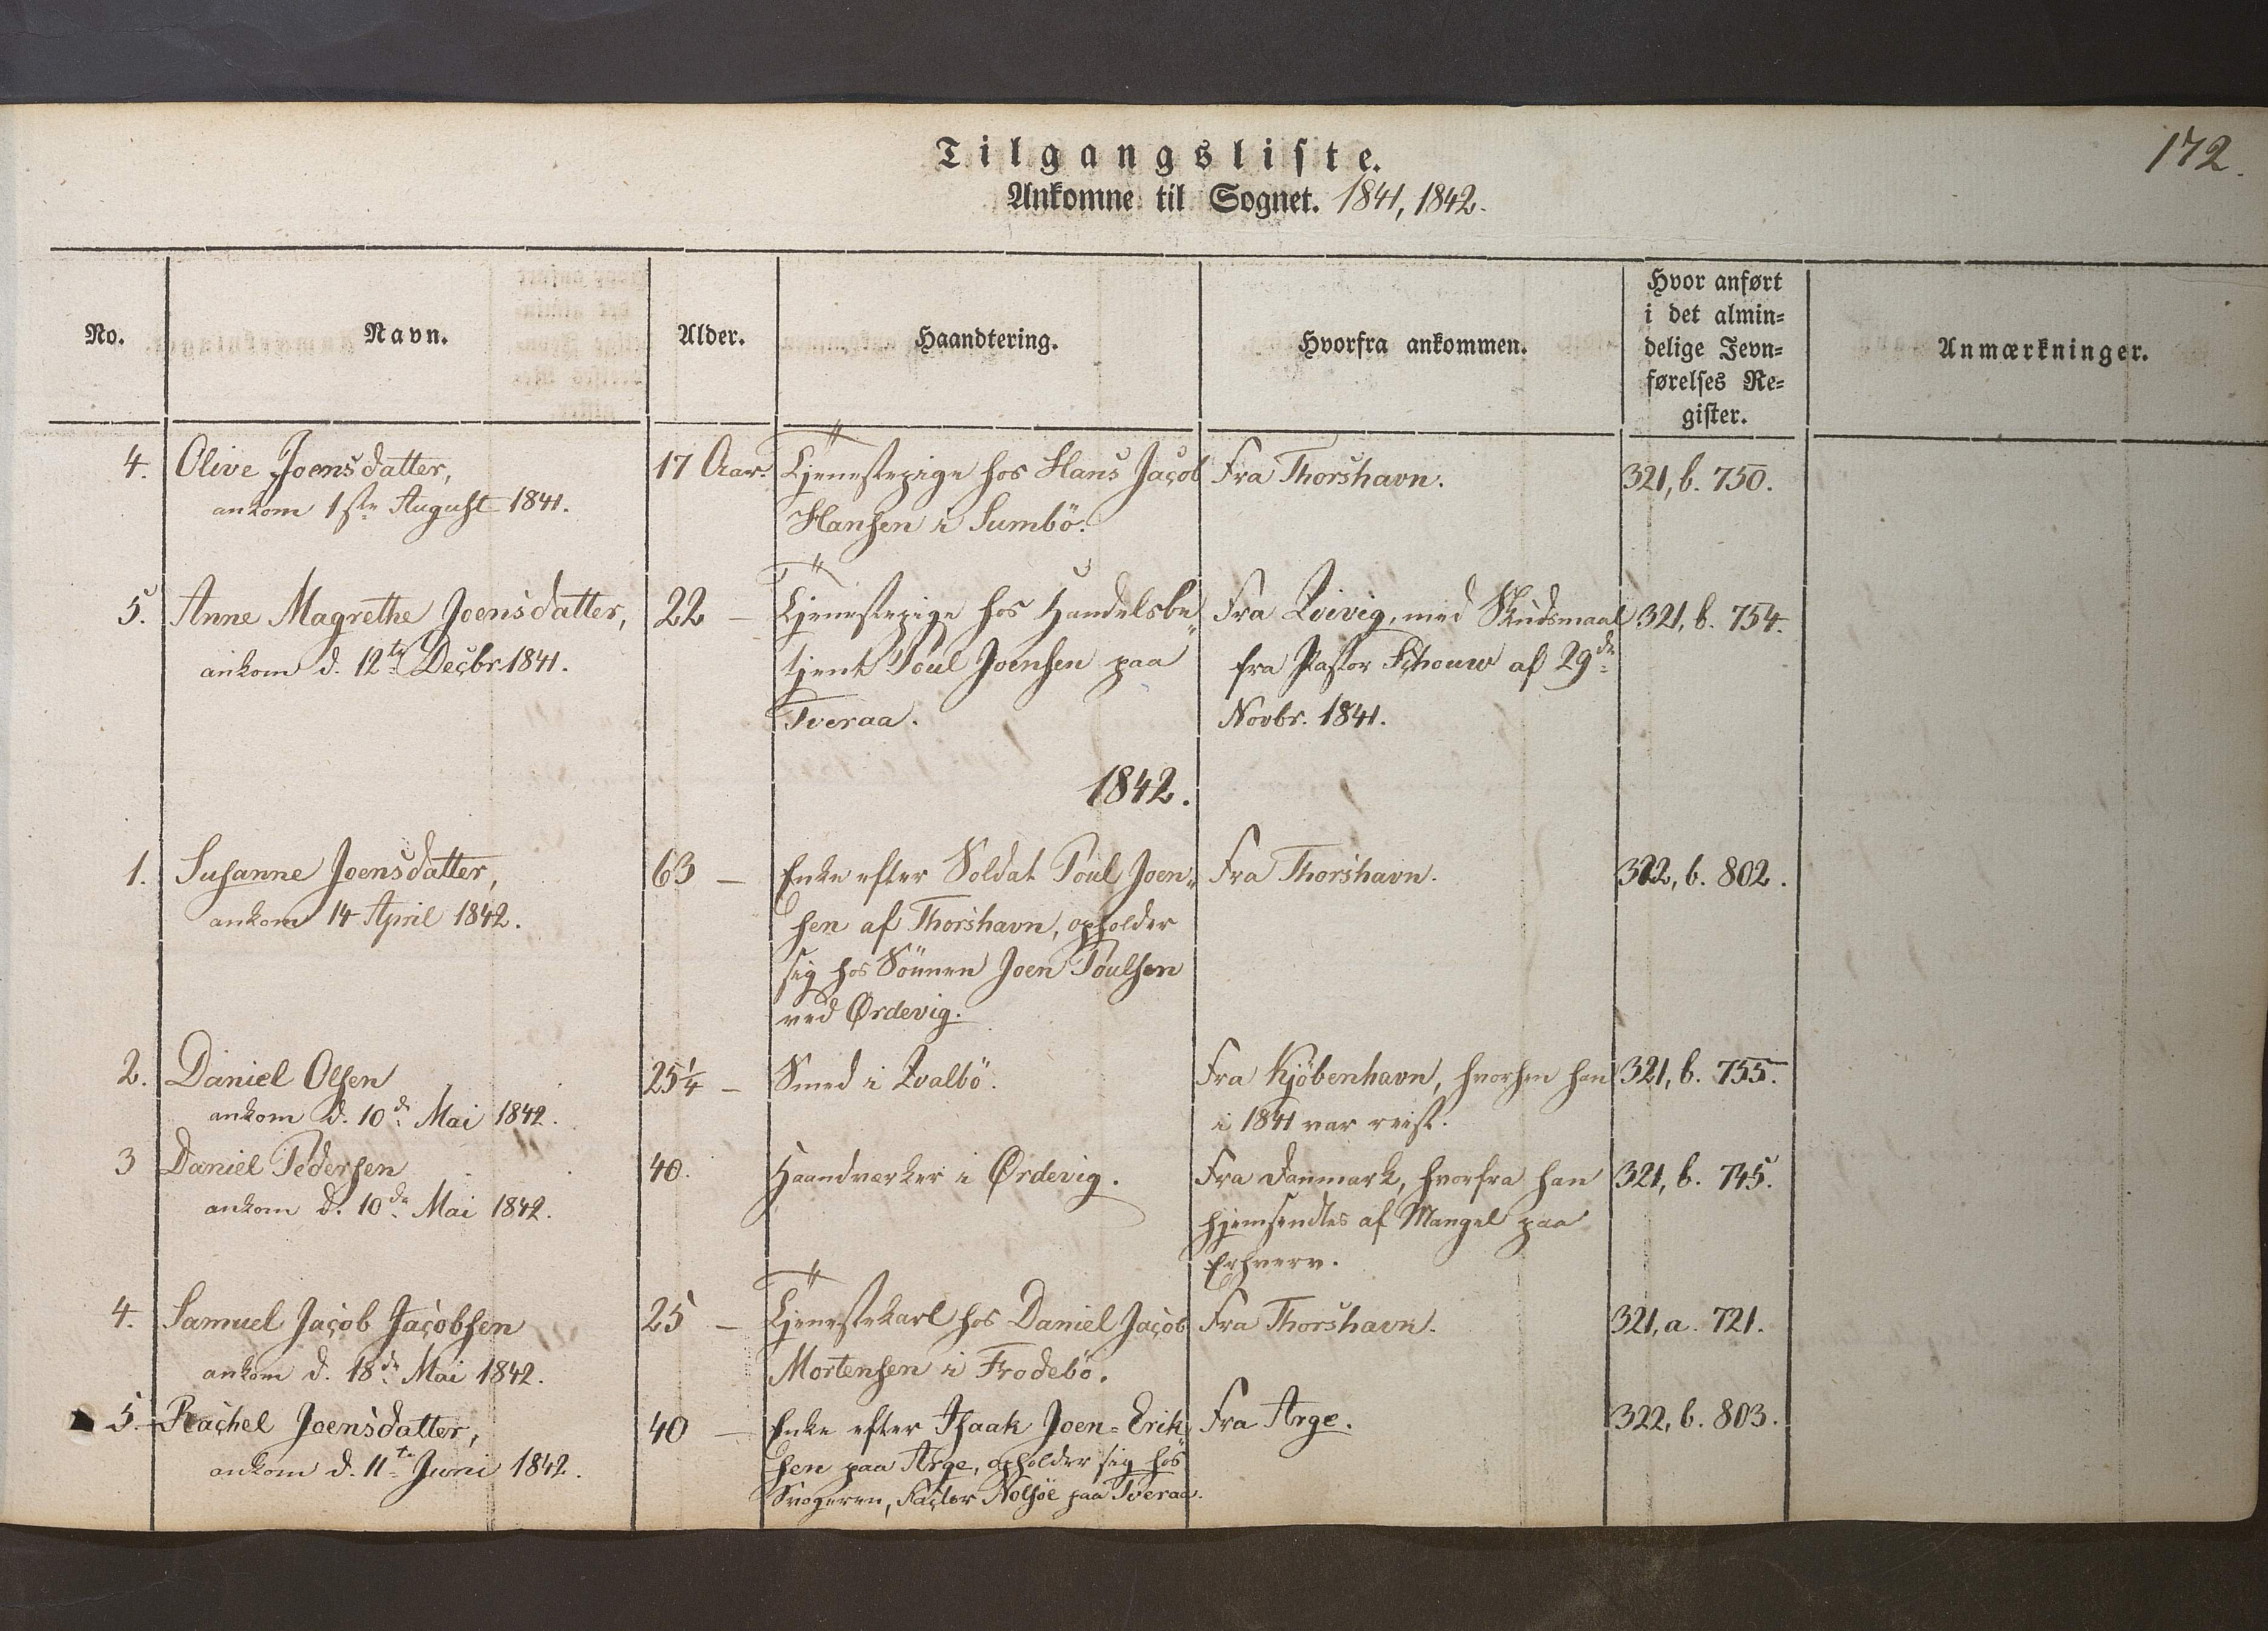 172.
Tilgangsliste.
Ankomne til Sognet. 1841, 1842.
No.
Navn.
Alder.
Haandtering.
Hvorfra ankommen.
Hvor anført
i det almin=
delige Jevn=
førelses Re=
gister.
Anmærkninger.
4. Olive Joensdatter,
ankom 1ste August 1841.
17 Aar.
Tjenestepige hos Hans Jacob
Hansen i Sumbö.
Fra Thorshavn.
321, b. 750.
5. Anne Magrethe Joensdatter,
ankom d. 12te Decbr. 1841.
22 –
Tjenestepige hos Handelsbe„
tjent Poul Joensen paa
Tveraa.
Fra Qvivig, med Skudsmaal
fra Pastor Schouw af 29de
Novbr. 1841.
321, b. 754.
1842.
1. Susanne Joensdatter,
ankom 14 April 1842.
63 –
Enke efter Soldat Poul Joen„
sen af Thorshavn, opholder
sig hos Sönnen Joen Poulsen
ved Ørdevig.
Fra Thorshavn.
322, b. 802.
2. Daniel Olsen
ankom d. 10de Mai 1842.
25¼ –
Smed i Qvalbö.
Fra Kjöbenhavn, hvorhen han
i 1841 var reist.
321, b. 755.
3 Daniel Pedersen
ankom d. 10de Mai 1842.
40.
Haandværker i Ørdevig.
Fra Danmark, hvorfra han
hjemsendtes af Mangel paa
Erhverv.
321, b. 745.
4. Samuel Jacob Jacobsen
ankom d. 18de Mai 1842.
25 –
Tjenestekarl hos Daniel Jacob
Mortensen i Frodebö.
Fra Thorshavn.
321, a. 721.
5. Rachel Joensdatter,
ankom d. 11te Juni 1842.
40 –
Enke efter Isaak Joen=Erik„
sen paa Arge, opholder sig hos
Svogeren, Factor Nolsöe paa Tveraa.
Fra Arge.
322, b. 803.